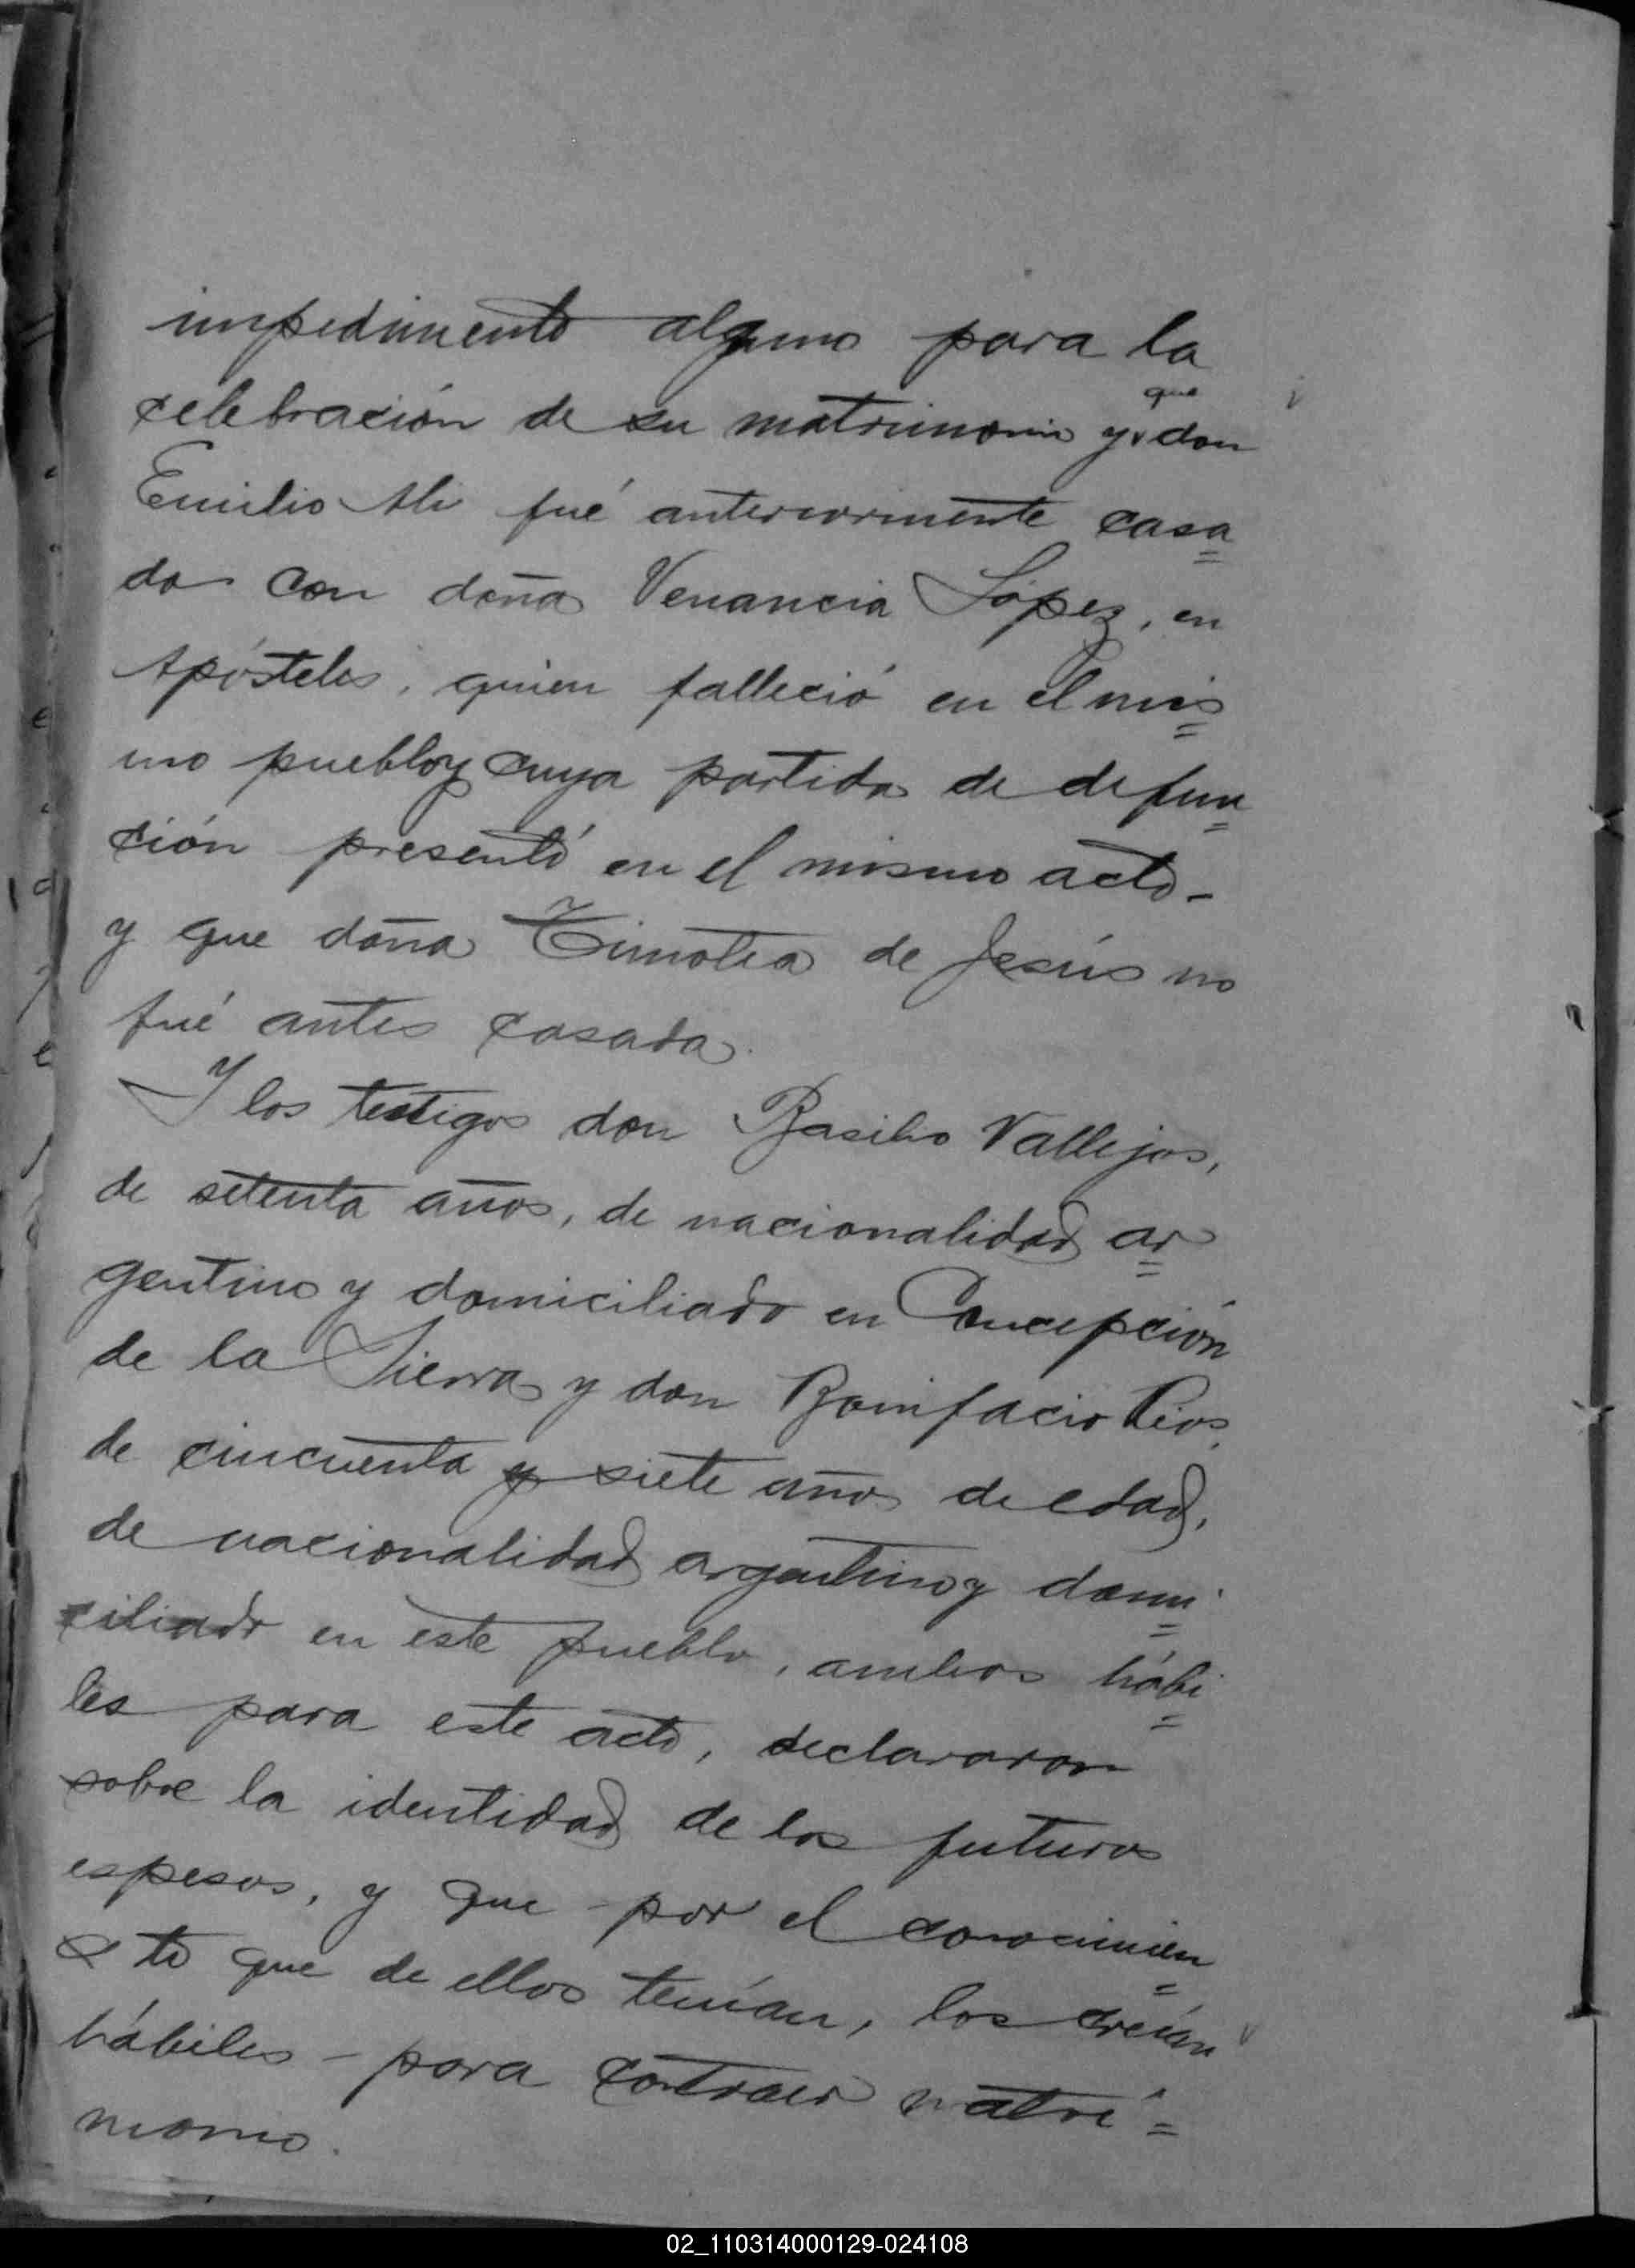 impedimento alguno para la
celebración de su matrimonio y que don
Emilio Ali fué anteriormente casa=
do con doña Venancia López, en
Apósteles, quien falleció en el mis=
mo pueblo y cuya partida de defun=
ción presentó en el mismo acto-
y que doña Timotea de Jesús no
fué antes casada.
Y los testigos don Basilio Vallejos,
de setenta años, de nacionalidad ar=
gentino y domiciliado en Concepción
de la Sierra y don Bonifacio Rios,
de cincuenta y siete años de edad,
de nacionalidad argentino y domi=
ciliado en este pueblo, ambos hábi=
les para este acto, declararon
sobre la identidad de los futuros
esposos, y que por el conocimien=
to que de ellos tenían, los creían
hábiles para contraer matri=
monio.
02_110314000129-024108